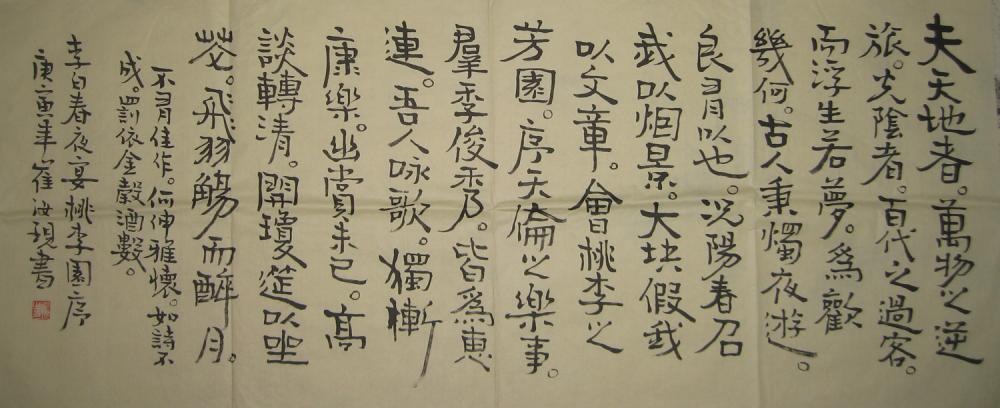 夫天地者。萬物之逆
旅。光陰者。百代之過客。
而浮生若夢。為歡
幾何。古人秉燭夜遊。
良有以也。況陽春召
我以烟景。大块假我
以文章。會桃李之
芳園。序天倫之樂事。
羣季俊秀乃。皆為惠
連。吾人咏歌。獨慚
康樂。幽賞未已。高
談轉清。開瓊筵以坐
花。飛羽觴而醉月。
不有佳作。何伸雅懷。如詩不
成。罰依金穀酒數。
李白春夜宴桃李園序
庚寅年崔汝現書